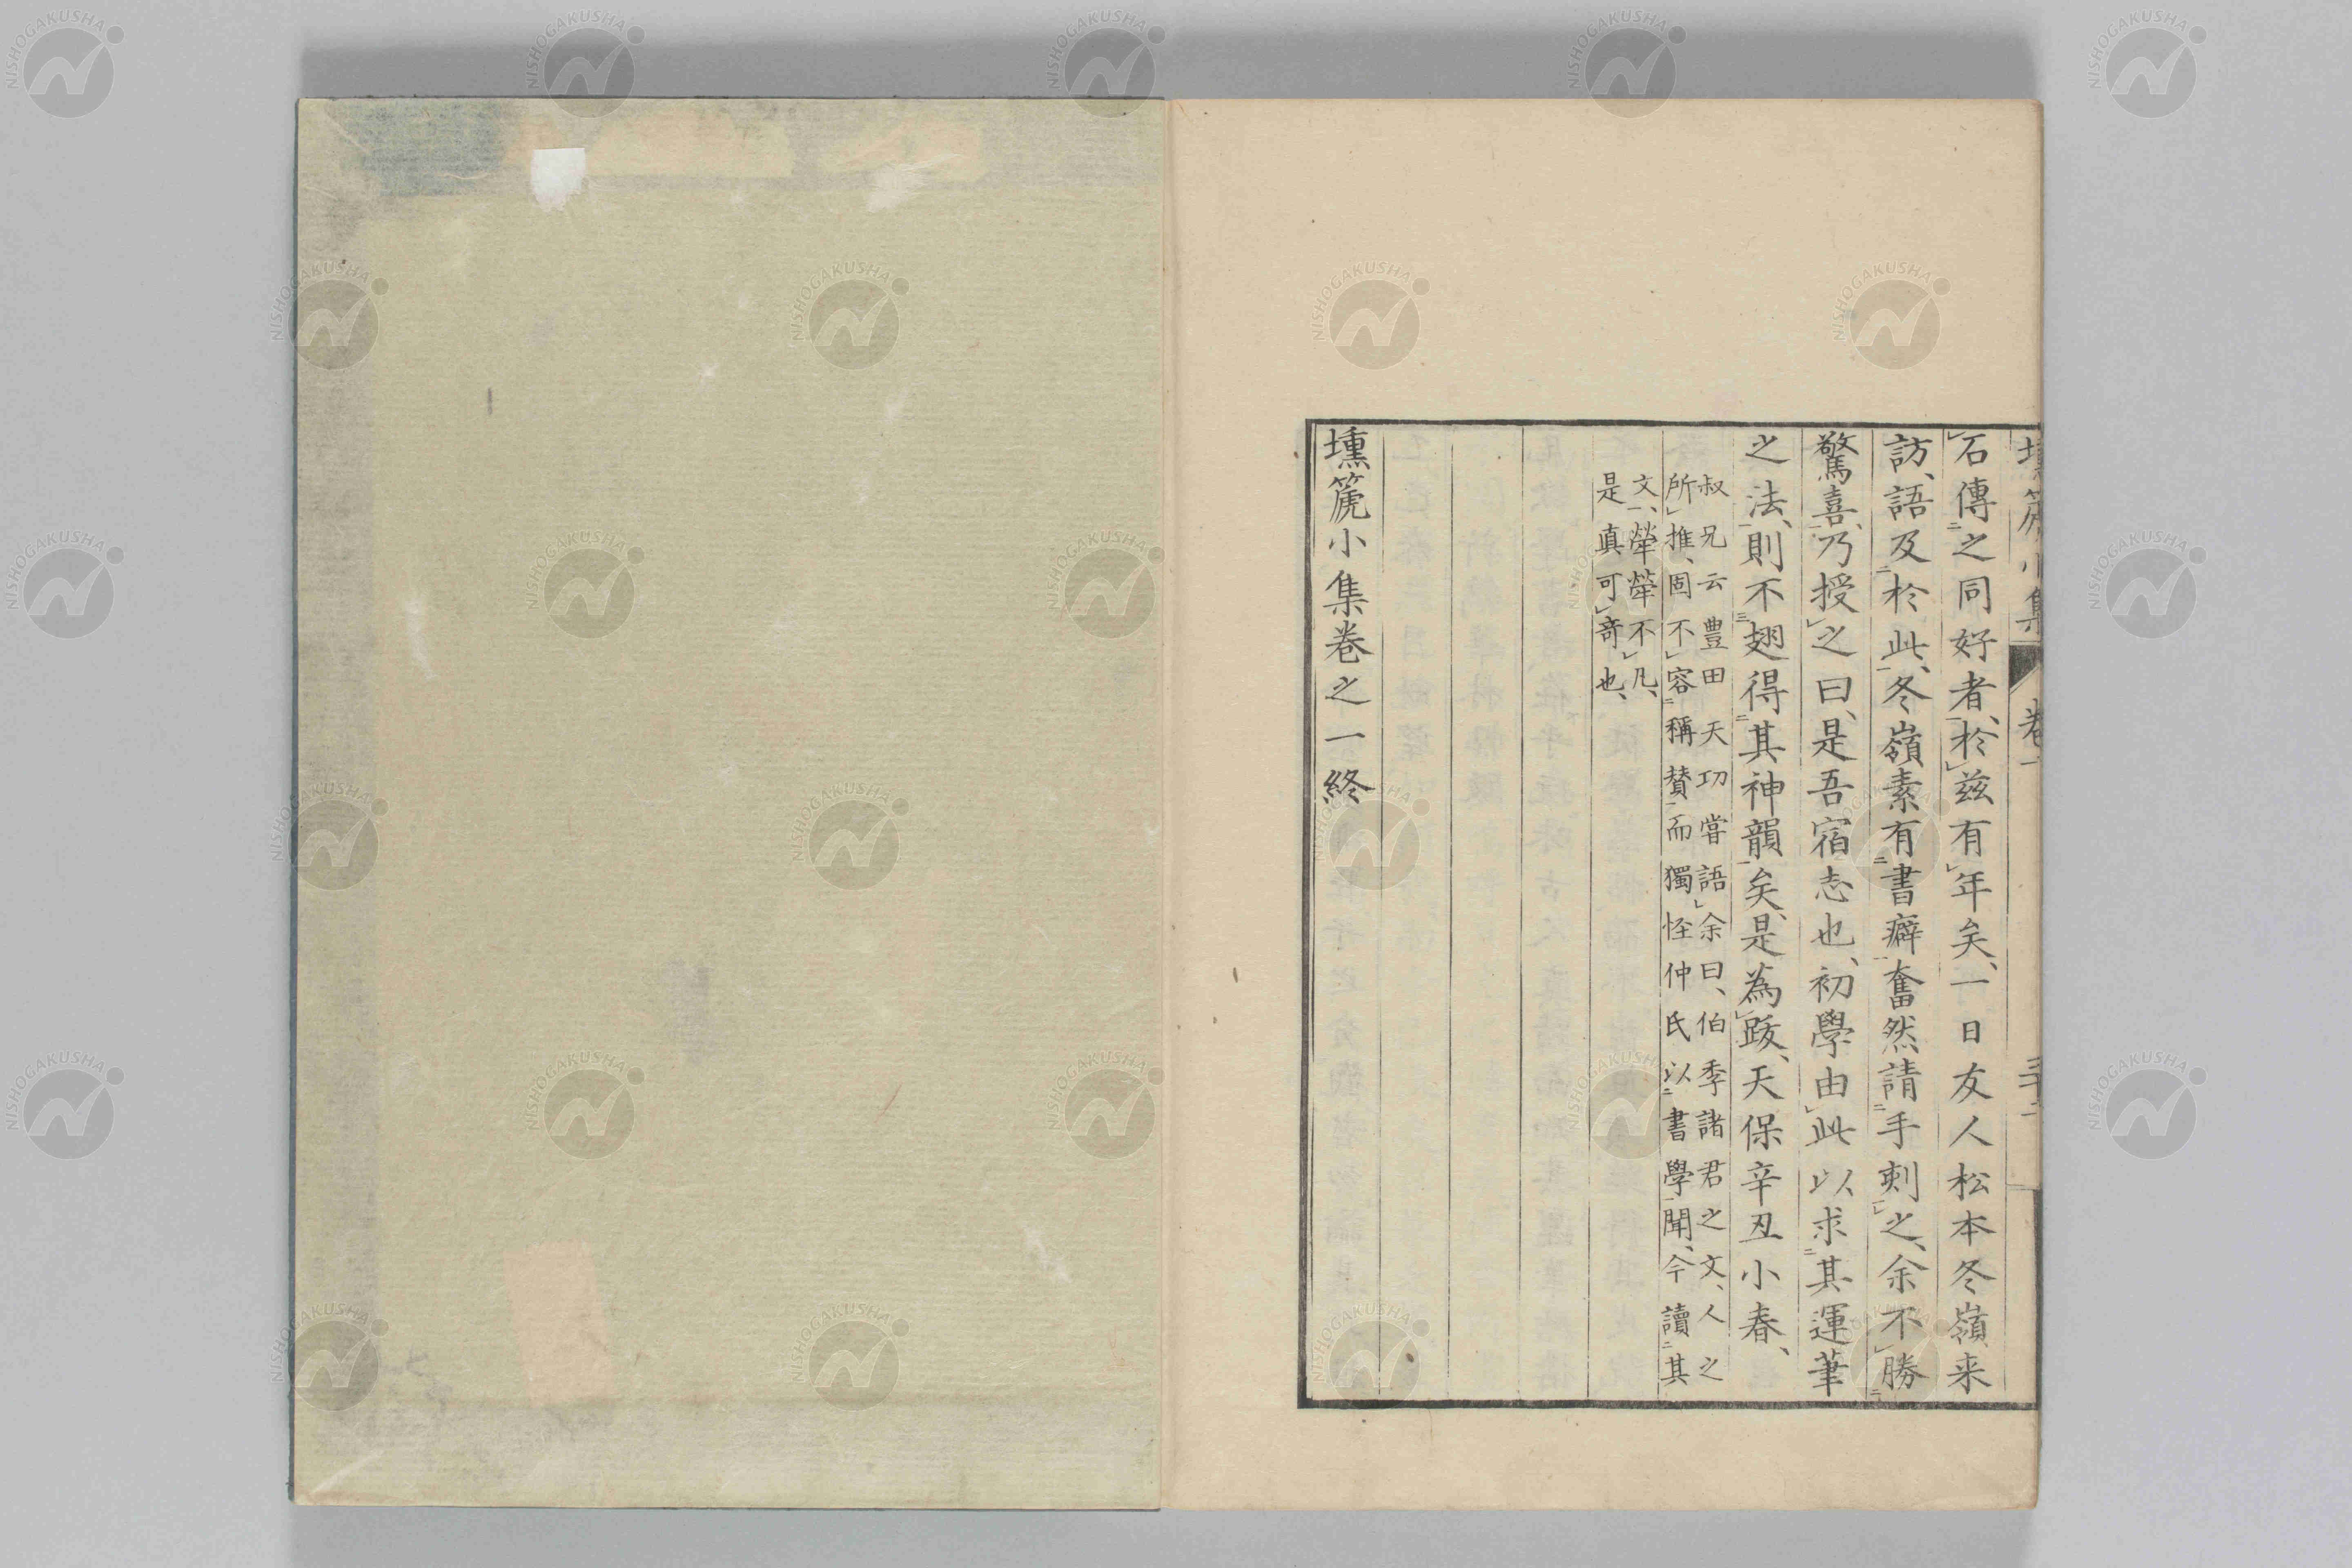 壎篪小集 卷一 三十二
石傳之同好者、於茲有年矣、一日友人松本冬嶺来
訪、語及於此、冬嶺素有書癖奮然請手刺之、余不勝
驚喜、乃授之曰、是吾宿志也、初學由此以求其運筆
之法、則不翅得其神韻矣、是為跋、天保辛丑小春、
叔兄云豊田天功嘗語余曰、伯季諸君之文、人之
所推、固不容稱賛而獨怪仲氏以書學聞、今讀其
文、犖犖不凡、
是真可奇也、
壎篪小集卷之一終
NISHOGAKUSHA